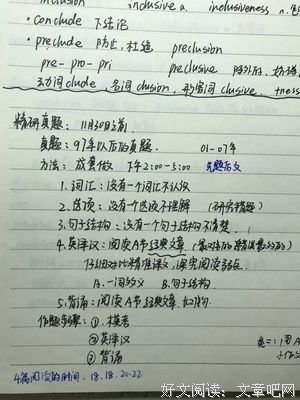 inclusion inclusive a. inclusiveness n.
• conclude 下结论
• preclude 防止,杜绝 preclusion
pre- pro- pri preclusive 除外的,妨碍
动词clude,名词clusion,形容词clusive +ness
精研真题: 11月30日之前
真题:97年以后的真题. 01-07年
方法: 成套做 下午2:00-5:00 先题后文
1.词汇:没有一个词汇不认识
2.选项:没有一个选项不理解 (研究错题)
3.句子结构:没有一个句子结构不清楚.
4.英译汉:阅读A节经典文章
仔细对比精准译文,深究阅读弱点.
A.一词多义 B.句子结构.
5.背诵:阅读A节经典文章.
做题步骤:①.模考
②英译汉
③背诵
4篇阅读的时间:18.18.20.22
好文阅读:文章吧网